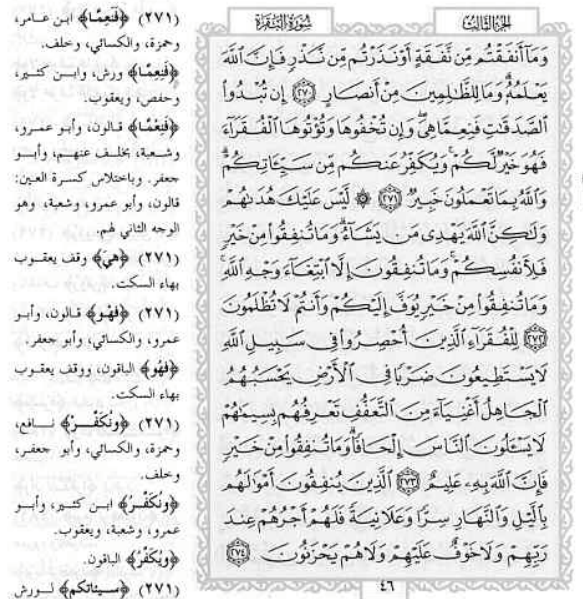 سُورَةُ البَقَرَةِ
الجزء الثالث
وَمَآ أَنفَقْتُم مِّن نَّفَقَةٍ أَوْ نَذَرْتُم مِّن نَّذْرٍ فَإِنَّ ٱللَّهَ
يَعْلَمُهُۥ وَمَا لِلظَّٰلِمِينَ مِنْ أَنصَارٍ ٢٧٠ إِن تُبْدُوا۟
ٱلصَّدَقَٰتِ فَنِعِمَّا هِىَ وَإِن تُخْفُوهَا وَتُؤْتُوهَا ٱلْفُقَرَآءَ
فَهُوَ خَيْرٌ لَّكُمْ وَيُكَفِّرُ عَنكُم مِّن سَيِّـَٔاتِكُمْ
وَٱللَّهُ بِمَا تَعْمَلُونَ خَبِيرٌ ٢٧١ ۞ لَّيْسَ عَلَيْكَ هُدَىٰهُمْ
وَلَٰكِنَّ ٱللَّهَ يَهْدِى مَن يَشَآءُ وَمَا تُنفِقُوا۟ مِنْ خَيْرٍ
فَلِأَنفُسِكُمْ وَمَا تُنفِقُونَ إِلَّا ٱبْتِغَآءَ وَجْهِ ٱللَّهِ
وَمَا تُنفِقُوا۟ مِنْ خَيْرٍ يُوَفَّ إِلَيْكُمْ وَأَنتُمْ لَا تُظْلَمُونَ
٢٧٢ لِلْفُقَرَآءِ ٱلَّذِينَ أُحْصِرُوا۟ فِى سَبِيلِ ٱللَّهِ
لَا يَسْتَطِيعُونَ ضَرْبًا فِى ٱلْأَرْضِ يَحْسَبُهُمُ
ٱلْجَاهِلُ أَغْنِيَآءَ مِنَ ٱلتَّعَفُّفِ تَعْرِفُهُم بِسِيمَٰهُمْ
لَا يَسْـَٔلُونَ ٱلنَّاسَ إِلْحَافًا وَمَا تُنفِقُوا۟ مِنْ خَيْرٍ
فَإِنَّ ٱللَّهَ بِهِۦ عَلِيمٌ ٢٧٣ ٱلَّذِينَ يُنفِقُونَ أَمْوَٰلَهُم
بِٱلَّيْلِ وَٱلنَّهَارِ سِرًّا وَعَلَانِيَةً فَلَهُمْ أَجْرُهُمْ عِندَ
رَبِّهِمْ وَلَا خَوْفٌ عَلَيْهِمْ وَلَا هُمْ يَحْزَنُونَ ٢٧٤
٤٦
(٢٧١) ﴿فَنَعِمَّا﴾ ابن عامر،
وحمزة، والكسائي، وخلف.
﴿فَنِعِمَّا﴾ ورش، وابن كثير،
وحفص، ويعقوب.
﴿فَنِعْمَّا﴾ قالون، وأبو عمرو،
وشعبة، بخلف عنهم، وأبو
جعفر. وباختلاس كسرة العين:
قالون، وأبو عمرو، وشعبة، وهو
الوجه الثاني لهم.
(٢٧١) ﴿هِيَ﴾ وقف يعقوب
بهاء السكت.
(٢٧١) ﴿فَهْوَ﴾ قالون، وأبو
عمرو، والكسائي، وأبو جعفر.
﴿فَهُوَ﴾ الباقون، ووقف يعقوب
بهاء السكت.
(٢٧١) ﴿وَنُكَفِّرْ﴾ نافع،
وحمزة، والكسائي، وأبو جعفر،
وخلف.
﴿وَنُكَفِّرُ﴾ ابن كثير، وأبو
عمرو، وشعبة، ويعقوب.
﴿وَيُكَفِّرُ﴾ الباقون.
(٢٧١) ﴿سيئاتكم﴾ لورش